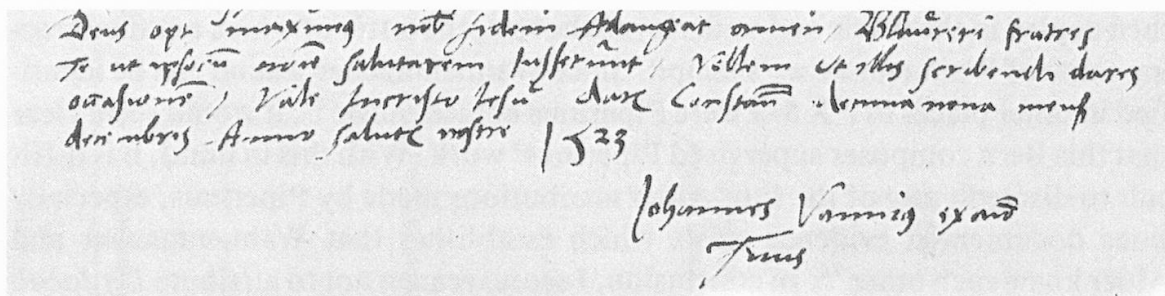 Deus opt maximus nob fidem Adaugeat amen Blaureri fratres
Te ut ipsorum noīe salutarem Iusserūnt Vellem ut illis scribendi dares
occasionē Vale Incristo Iesu Dat Constan decima nona mens
decembris Anno salut nostre 1523
Iohannes Vannius ex aīo
Tuus